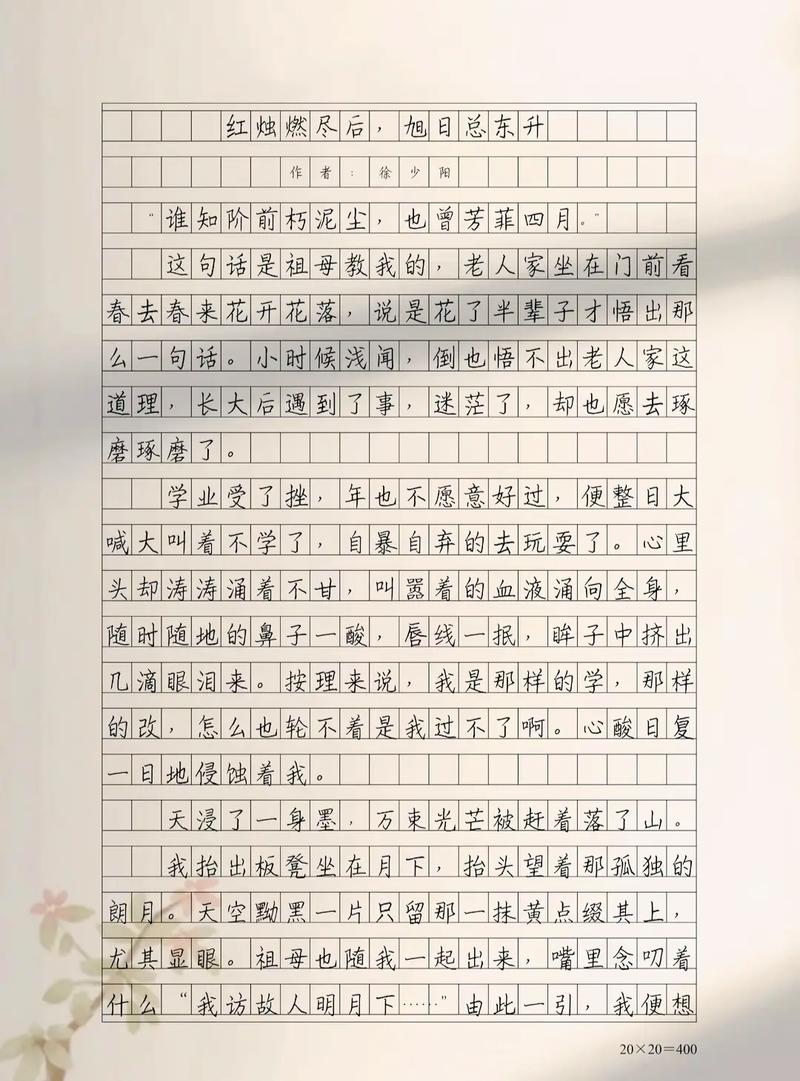 红烛燃尽后，旭日总东升
作者：徐少阳
“谁知阶前朽泥尘，也曾芳菲四月。”
这句话是祖母教我的，老人家坐在门前看
春去春来花开花落，说是花了半辈子才悟出那
么一句话。小时候浅闻，倒也悟不出老人家这
道理，长大后遇到了事，迷茫了，却也愿去琢
磨琢磨了。
学业受了挫，年也不愿意好过，便整日大
喊大叫着不学了，自暴自弃的去玩耍了。心里
头却涛涛涌着不甘，叫嚣着的血液涌向全身，
随时随地的鼻子一酸，唇线一抿，眸子中挤出
几滴眼泪来。按理来说，我是那样的学，那样
的改，怎么也轮不着是我过不了啊。心酸日复
一日地侵蚀着我。
天浸了一身墨，万束光芒被赶着落了山。
我抬出板凳坐在月下，抬头望着那孤独的
朗月。天空黝黑一片只留那一抹黄点缀其上，
尤其显眼。祖母也随我一起出来，嘴里念叨着
什么“我访故人明月下……”由此一引，我便想
20×20=400